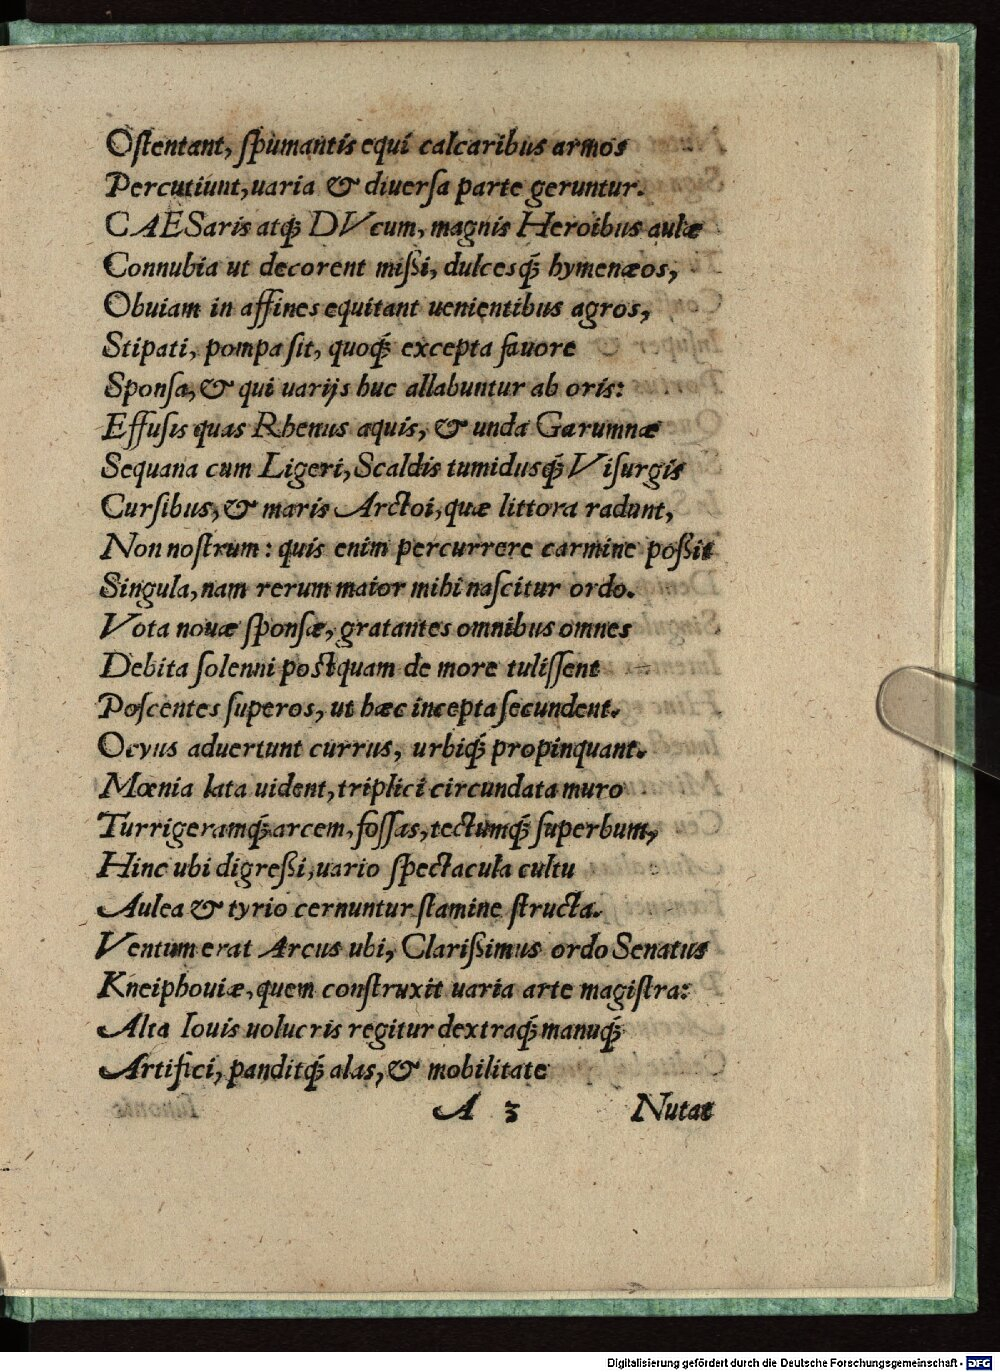 Oſtentant, ſpumantis equi calcaribus armos
Percutiunt, uaria & diuerſa parte geruntur.
CAESaris atq́; DVcum, magnis Heroibus aulæ
Connubia ut decorent mißi, dulcesq́; hymenæos,
Obuiam in affines equitant uenientibus agros,
Stipati, pompa ſit, quoq́; excepta fauore
Sponſa, & qui uarijs huc allabuntur ab oris:
Effuſis quas Rhenus aquis, & unda Garumnæ
Sequana cum Ligeri, Scaldis tumidusq́; Viſurgis
Curſibus, & maris Arctoi, quæ littora radunt,
Non noſtrum: quis enim percurrere carmine poßit
Singula, nam rerum maior mihi naſcitur ordo.
Vota nouæ ſponſæ, gratantes omnibus omnes
Debita ſolenni postquam de more tuliſſent
Poſcentes ſuperos, ut hæc incepta ſecundent.
Ocyus aduertunt currus, urbiq́; propinquant.
Mœnia lata uident, triplici circundata muro
Turrigeramq́; arcem, foſſas, tectumq́; ſuperbum,
Hinc ubi digreßi, uario ſpectacula cultu
Aulea & tyrio cernuntur ſtamine ſtructa.
Ventum erat Arcus ubi, Clarißimus ordo Senatus
Kneiphouiæ, quem conſtruxit uaria arte magiſtra:
Alta Iouis uolucris regitur dextraq́; manuq́;
Artifici, panditq́; alas, & mobilitate
A 3 Nutat
Digitalisierung gefördert durch die Deutsche Forschungsgemeinschaft - DFG